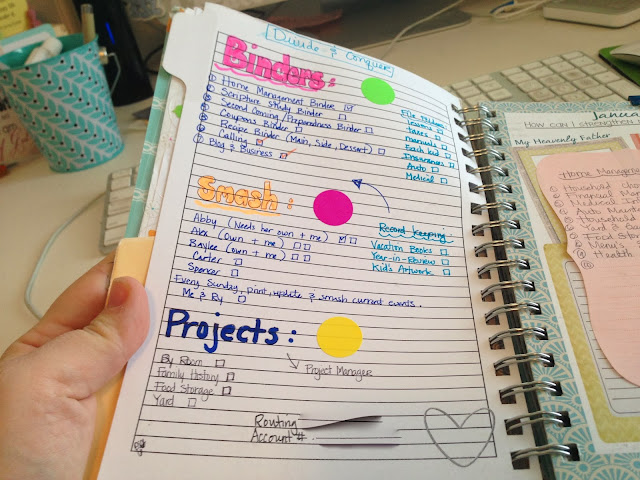 Divide & Conquer
Binders:
① Home Management Binder
② Scripture Study Binder
③ Second Coming/Preparedness Binder
④ Coupons Binder
⑤ Recipe Binder (Main, Side, Dessert)
⑥ Calling
⑦ Blog & Business
File Folders
lessons
taxes
manuals
Each kid
Insurances
Auto
Medical
Smash:
Abby (Needs her own + me)
Alex (own + me)
Baylee (own + me)
Carter
Spencer
Every Sunday, print, update & smash current events.
Me & Ry
Record Keeping:
Vacation Books
Year-in-Review
Kid's Artwork
Projects:
By Room
Family History
Food Storage
Yard
Project Manager
Routing
Account #
Janua
How can I strengthen
My Heavenly Father
Home Manageme
① Household
② Financial
③ Medical
④ Auto
⑤ Household
⑥ Yard & Ga
⑦ Food Stor
⑧ Menu's
⑨ Health
⑩